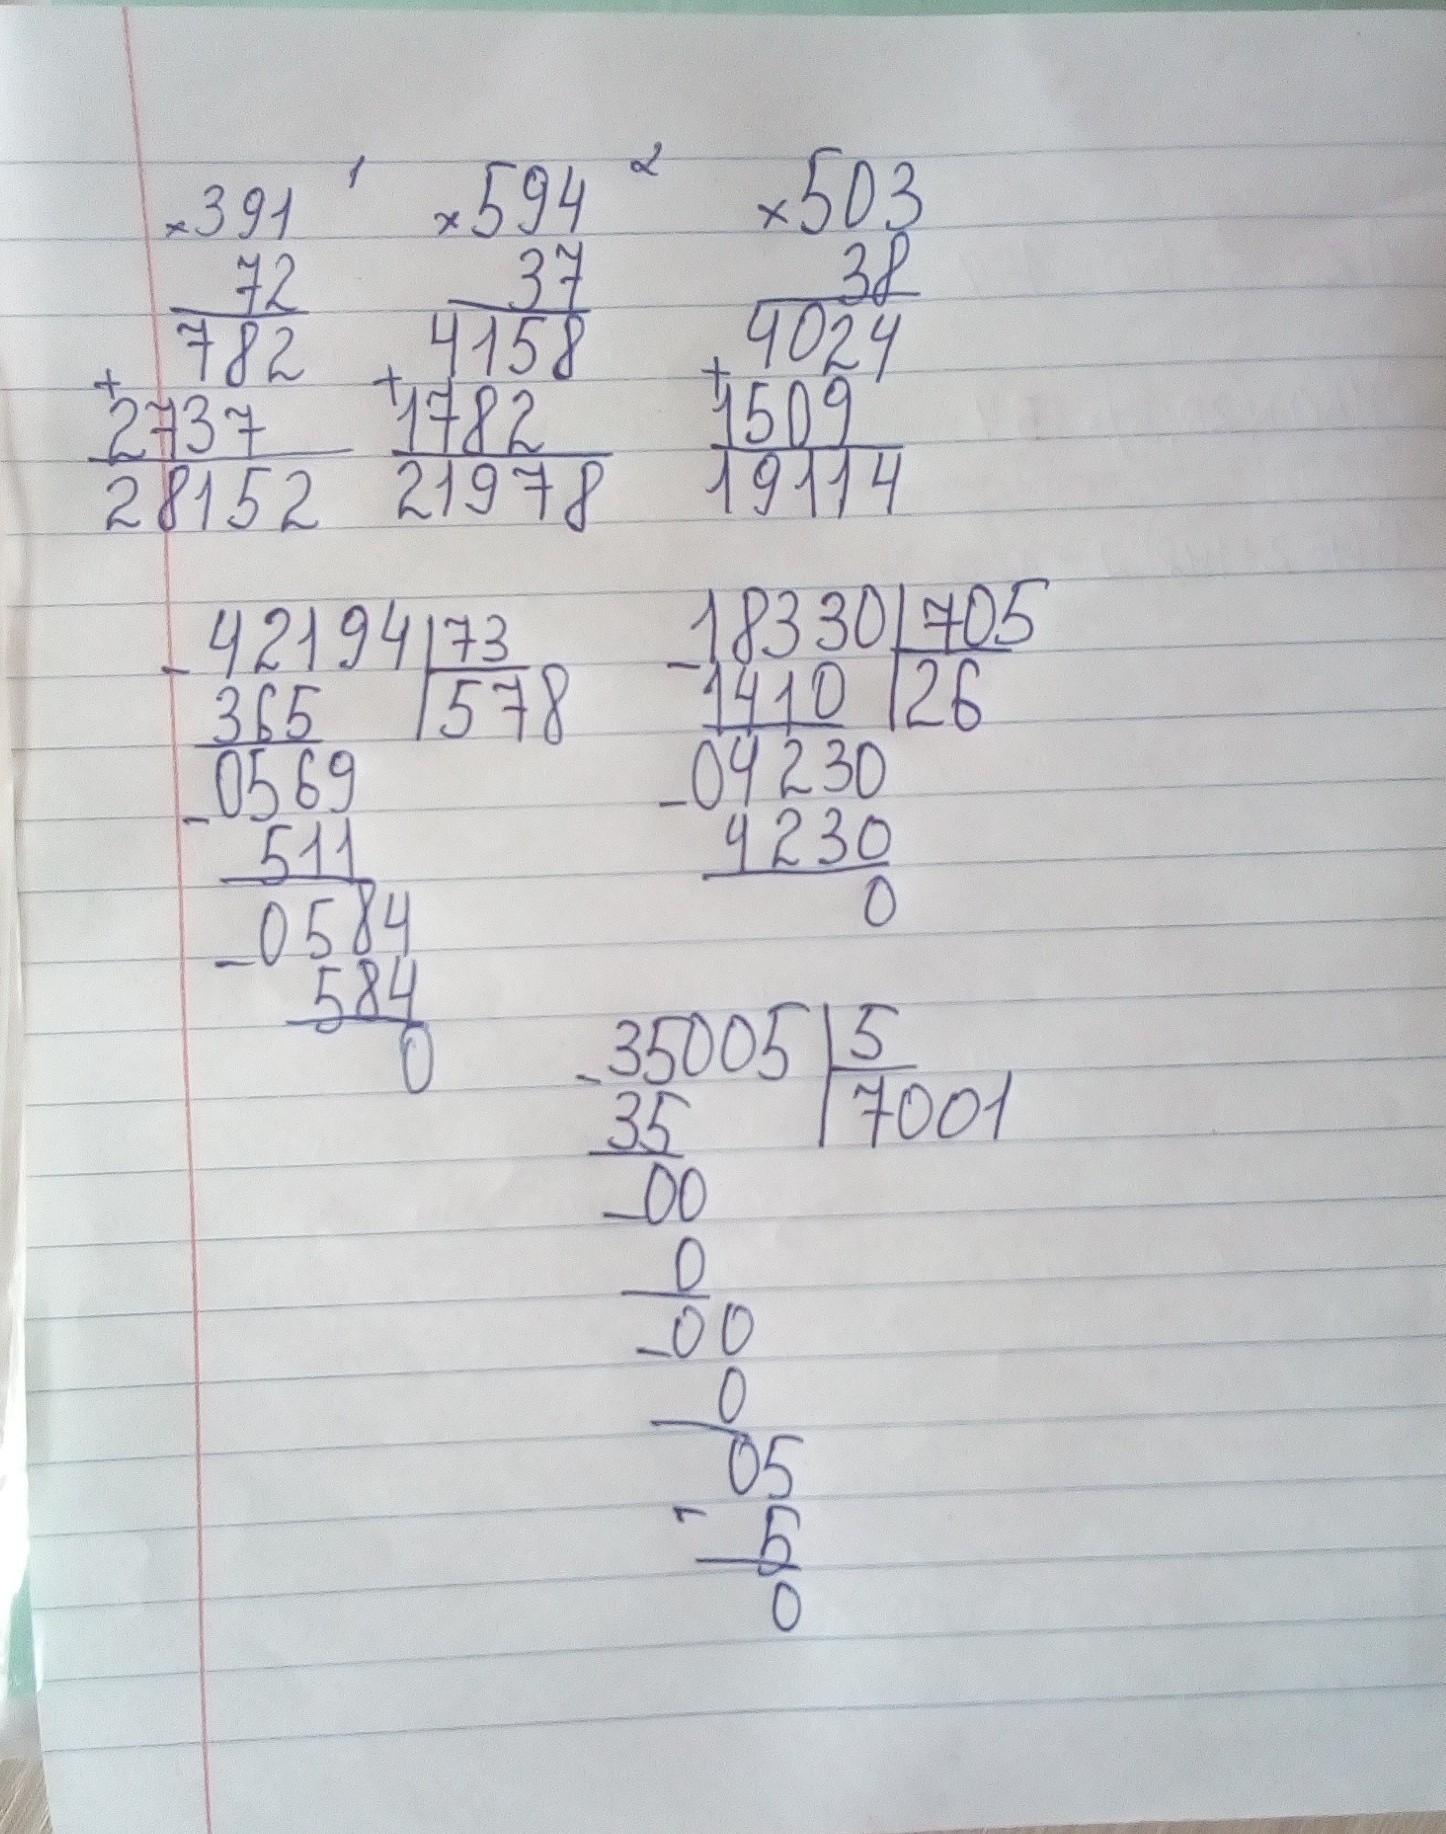 ×391 1 ×594 2 ×503
72 37 38
782 4158 4024
+ + +
2737 1782 1509
28152 21978 19114
-42194|73
365 |578
-0569
511
-0584
584
0
-18330|705
1410 |26
-04230
4230
0
-35005|5
35 |7001
-00
0
-00
0
05
- 5
0